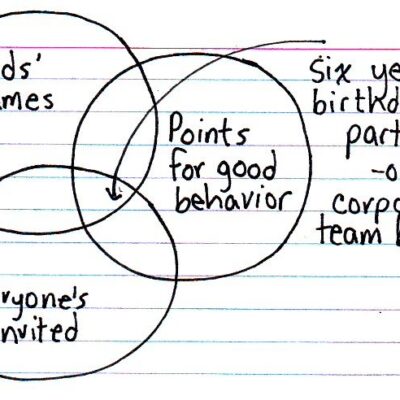 ds'
mes
Points
for good
behavior
Six ye
birthd
part
-o
corpo
team b
ryone's
nvited